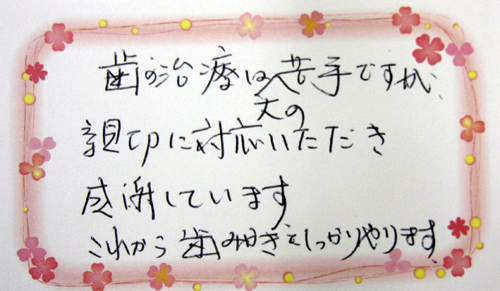 歯の治療は大の苦手ですが、
親切に対応いただき
感謝しています
これから歯みがきをしっかりやります